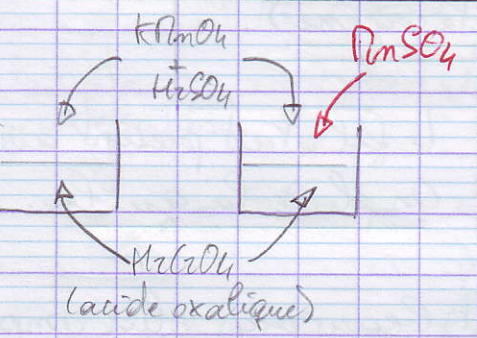 KMnO4
+
H2SO4
MnSO4
H2C2O4
(acide oxalique)